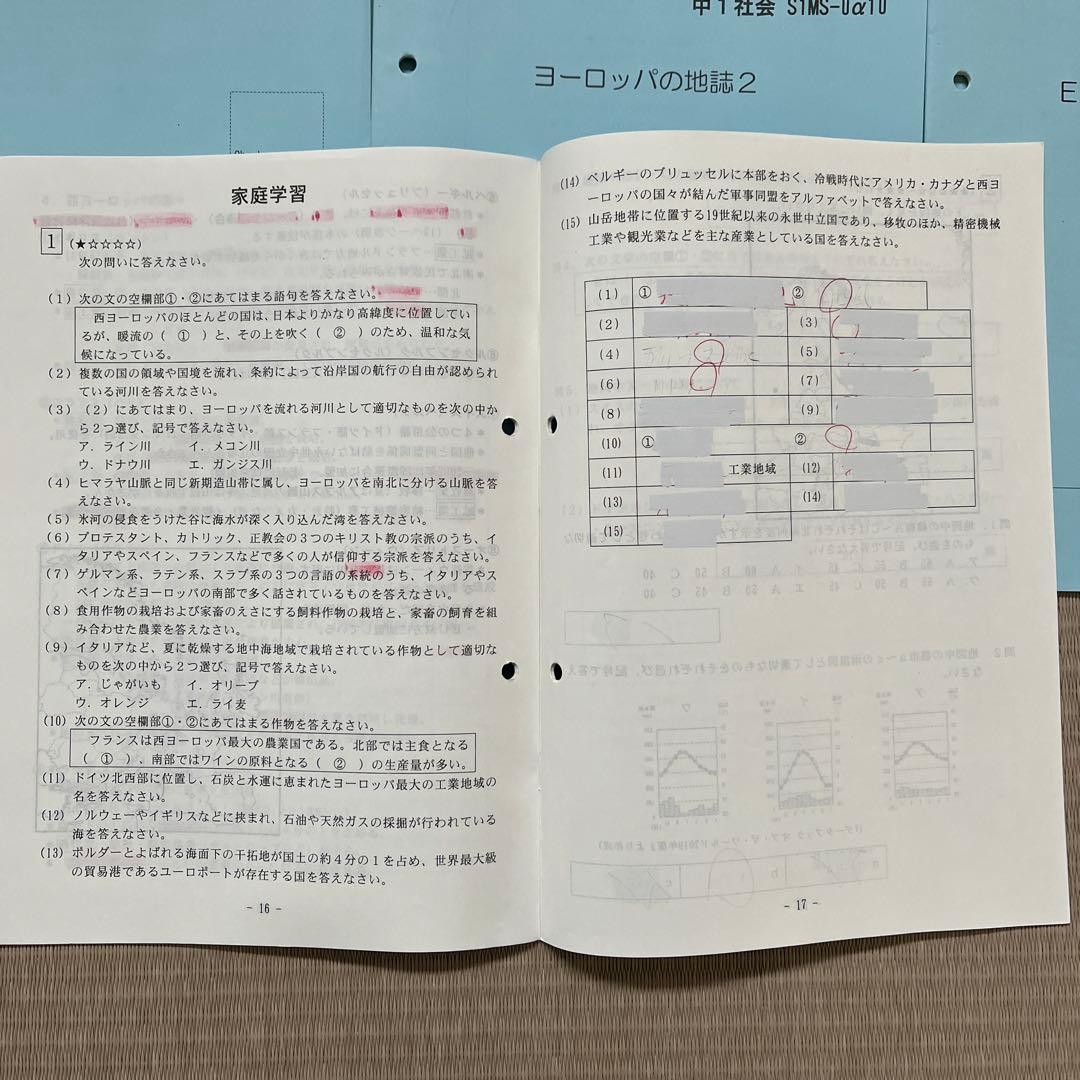 中1社会 S1MS-Uα10
ヨーロッパの地誌2
E
家庭学習
1 (★☆☆☆☆)
次の問いに答えなさい。
(1) 次の文の空欄部①・②にあてはまる語句を答えなさい。
西ヨーロッパのほとんどの国は、日本よりかなり高緯度に位置してい
るが、暖流の( ① )と、その上を吹く( ② )のため、温和な気
候になっている。
(2) 複数の国の領域や国境を流れ、条約によって沿岸国の航行の自由が認められ
ている河川を答えなさい。
(3) (2)にあてはまり、ヨーロッパを流れる河川として適切なものを次の中か
ら2つ選び、記号で答えなさい。
ア.ライン川 イ.メコン川
ウ.ドナウ川 エ.ガンジス川
(4) ヒマラヤ山脈と同じ新期造山帯に属し、ヨーロッパを南北に分ける山脈を答
えなさい。
(5) 氷河の侵食をうけた谷に海水が深く入り込んだ湾を答えなさい。
(6) プロテスタント、カトリック、正教会の3つのキリスト教の宗派のうち、イ
タリアやスペイン、フランスなどで多くの人が信仰する宗派を答えなさい。
(7) ゲルマン系、ラテン系、スラブ系の3つの言語の系統のうち、イタリアやス
ペインなどヨーロッパの南部で多く話されているものを答えなさい。
(8) 食用作物の栽培および家畜のえさにする飼料作物の栽培と、家畜の飼育を組
み合わせた農業を答えなさい。
(9) イタリアなど、夏に乾燥する地中海地域で栽培されている作物として適切な
ものを次の中から2つ選び、記号で答えなさい。
ア.じゃがいも イ.オリーブ
ウ.オレンジ エ.ライ麦
(10) 次の文の空欄部①・②にあてはまる作物を答えなさい。
フランスは西ヨーロッパ最大の農業国である。北部では主食となる
( ① )、南部ではワインの原料となる( ② )の生産量が多い。
(11) ドイツ北西部に位置し、石炭と水運に恵まれたヨーロッパ最大の工業地域の
名を答えなさい。
(12) ノルウェーやイギリスなどに挟まれ、石油や天然ガスの採掘が行われている
海を答えなさい。
(13) ポルダーとよばれる海面下の干拓地が国土の約4分の1を占め、世界最大級
の貿易港であるユーロポートが存在する国を答えなさい。
- 16 -
(14) ベルギーのブリュッセルに本部をおく、冷戦時代にアメリカ・カナダと西ヨ
ーロッパの国々が結んだ軍事同盟をアルファベットで答えなさい。
(15) 山岳地帯に位置する19世紀以来の永世中立国であり、移牧のほか、精密機械
工業や観光業などを主な産業としている国を答えなさい。
(1) ① ②
(2) (3)
(4) (5)
(6) (7)
(8) (9)
(10) ① ②
(11) 工業地域 (12)
(13) (14)
(15)
- 17 -